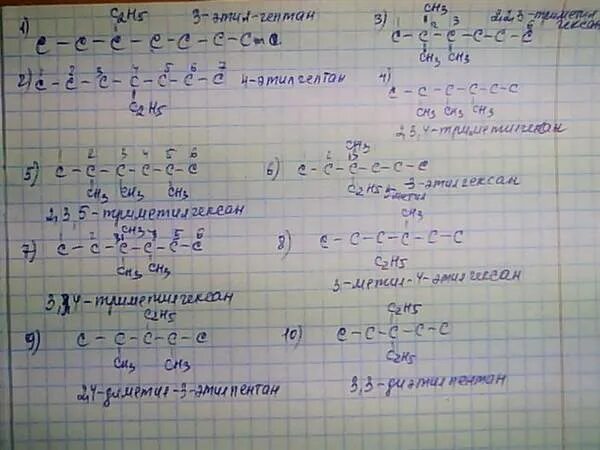 1) C₂H₅ 3-этил-гептан
C - C - C - C - C - C - C - C
2) 1 2 3 4 5 6 7
C - C - C - C - C - C - C 4-этилгептан
C₂H₅
3) CH₃ 2,2,3-триметил гексан
1 2 3 6
C - C - C - C - C - C
CH₃ CH₃
4) C - C - C - C - C - C
CH₃ CH₃ CH₃
2,3,4-триметилгексан
5) 1 2 3 4 5 6
C - C - C - C - C - C
CH₃ CH₃ CH₃
2,3,5-триметилгексан
6) CH₃
1 2 3
C - C - C - C - C - C
C₂H₅ 3-этилгексан
метил
7) CH₃
1 2 3 4 5 6
C - C - C - C - C - C
CH₃ CH₃
3,3,4-триметилгексан
8) CH₃
C - C - C - C - C - C
C₂H₅
3-метил-4-этилгексан
9) C₂H₅
C - C - C - C - C
CH₃ CH₃
2,4-диметил-3-этилпентан
10) C₂H₅
C - C - C - C - C
C₂H₅
3,3-диэтилпентан